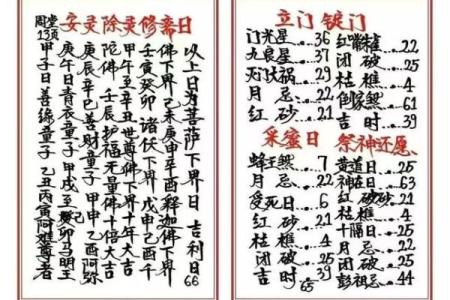 安灵除灵修斋日
周堂13页
甲子日善缘童子乙丑丙寅阿难尊者
庚午日青衣童子甲戌至癸卯马明王
庚辰辛巳善财童子甲申乙酉阿弥
陀佛壬辰护福无量佛十倍大吉
甲午至辛丑世尊佛下界十年大吉
壬寅癸卯诸佛下界戊申己酉千
佛下界己未庚申辛酉释迦佛下界
以上日为菩萨下界日吉利日
66
立门 锭门
门光星……36 红嘴朱雀……22
九良星……37 闭破……25
天门大祸……29 枯樵……4
月忌……22 倒家煞……61
红砂……21 吉时……39
采蜜日 祭神还愿
蜂王煞……7 黄道日……25
月忌……22 神在日……63
受死日……6 红砂……21
红砂……21 枯樵……4
枯樵……4 十隔日……25
闭破……25 月忌……22
吉时……39 闭破……25
彭祖忌……44
65